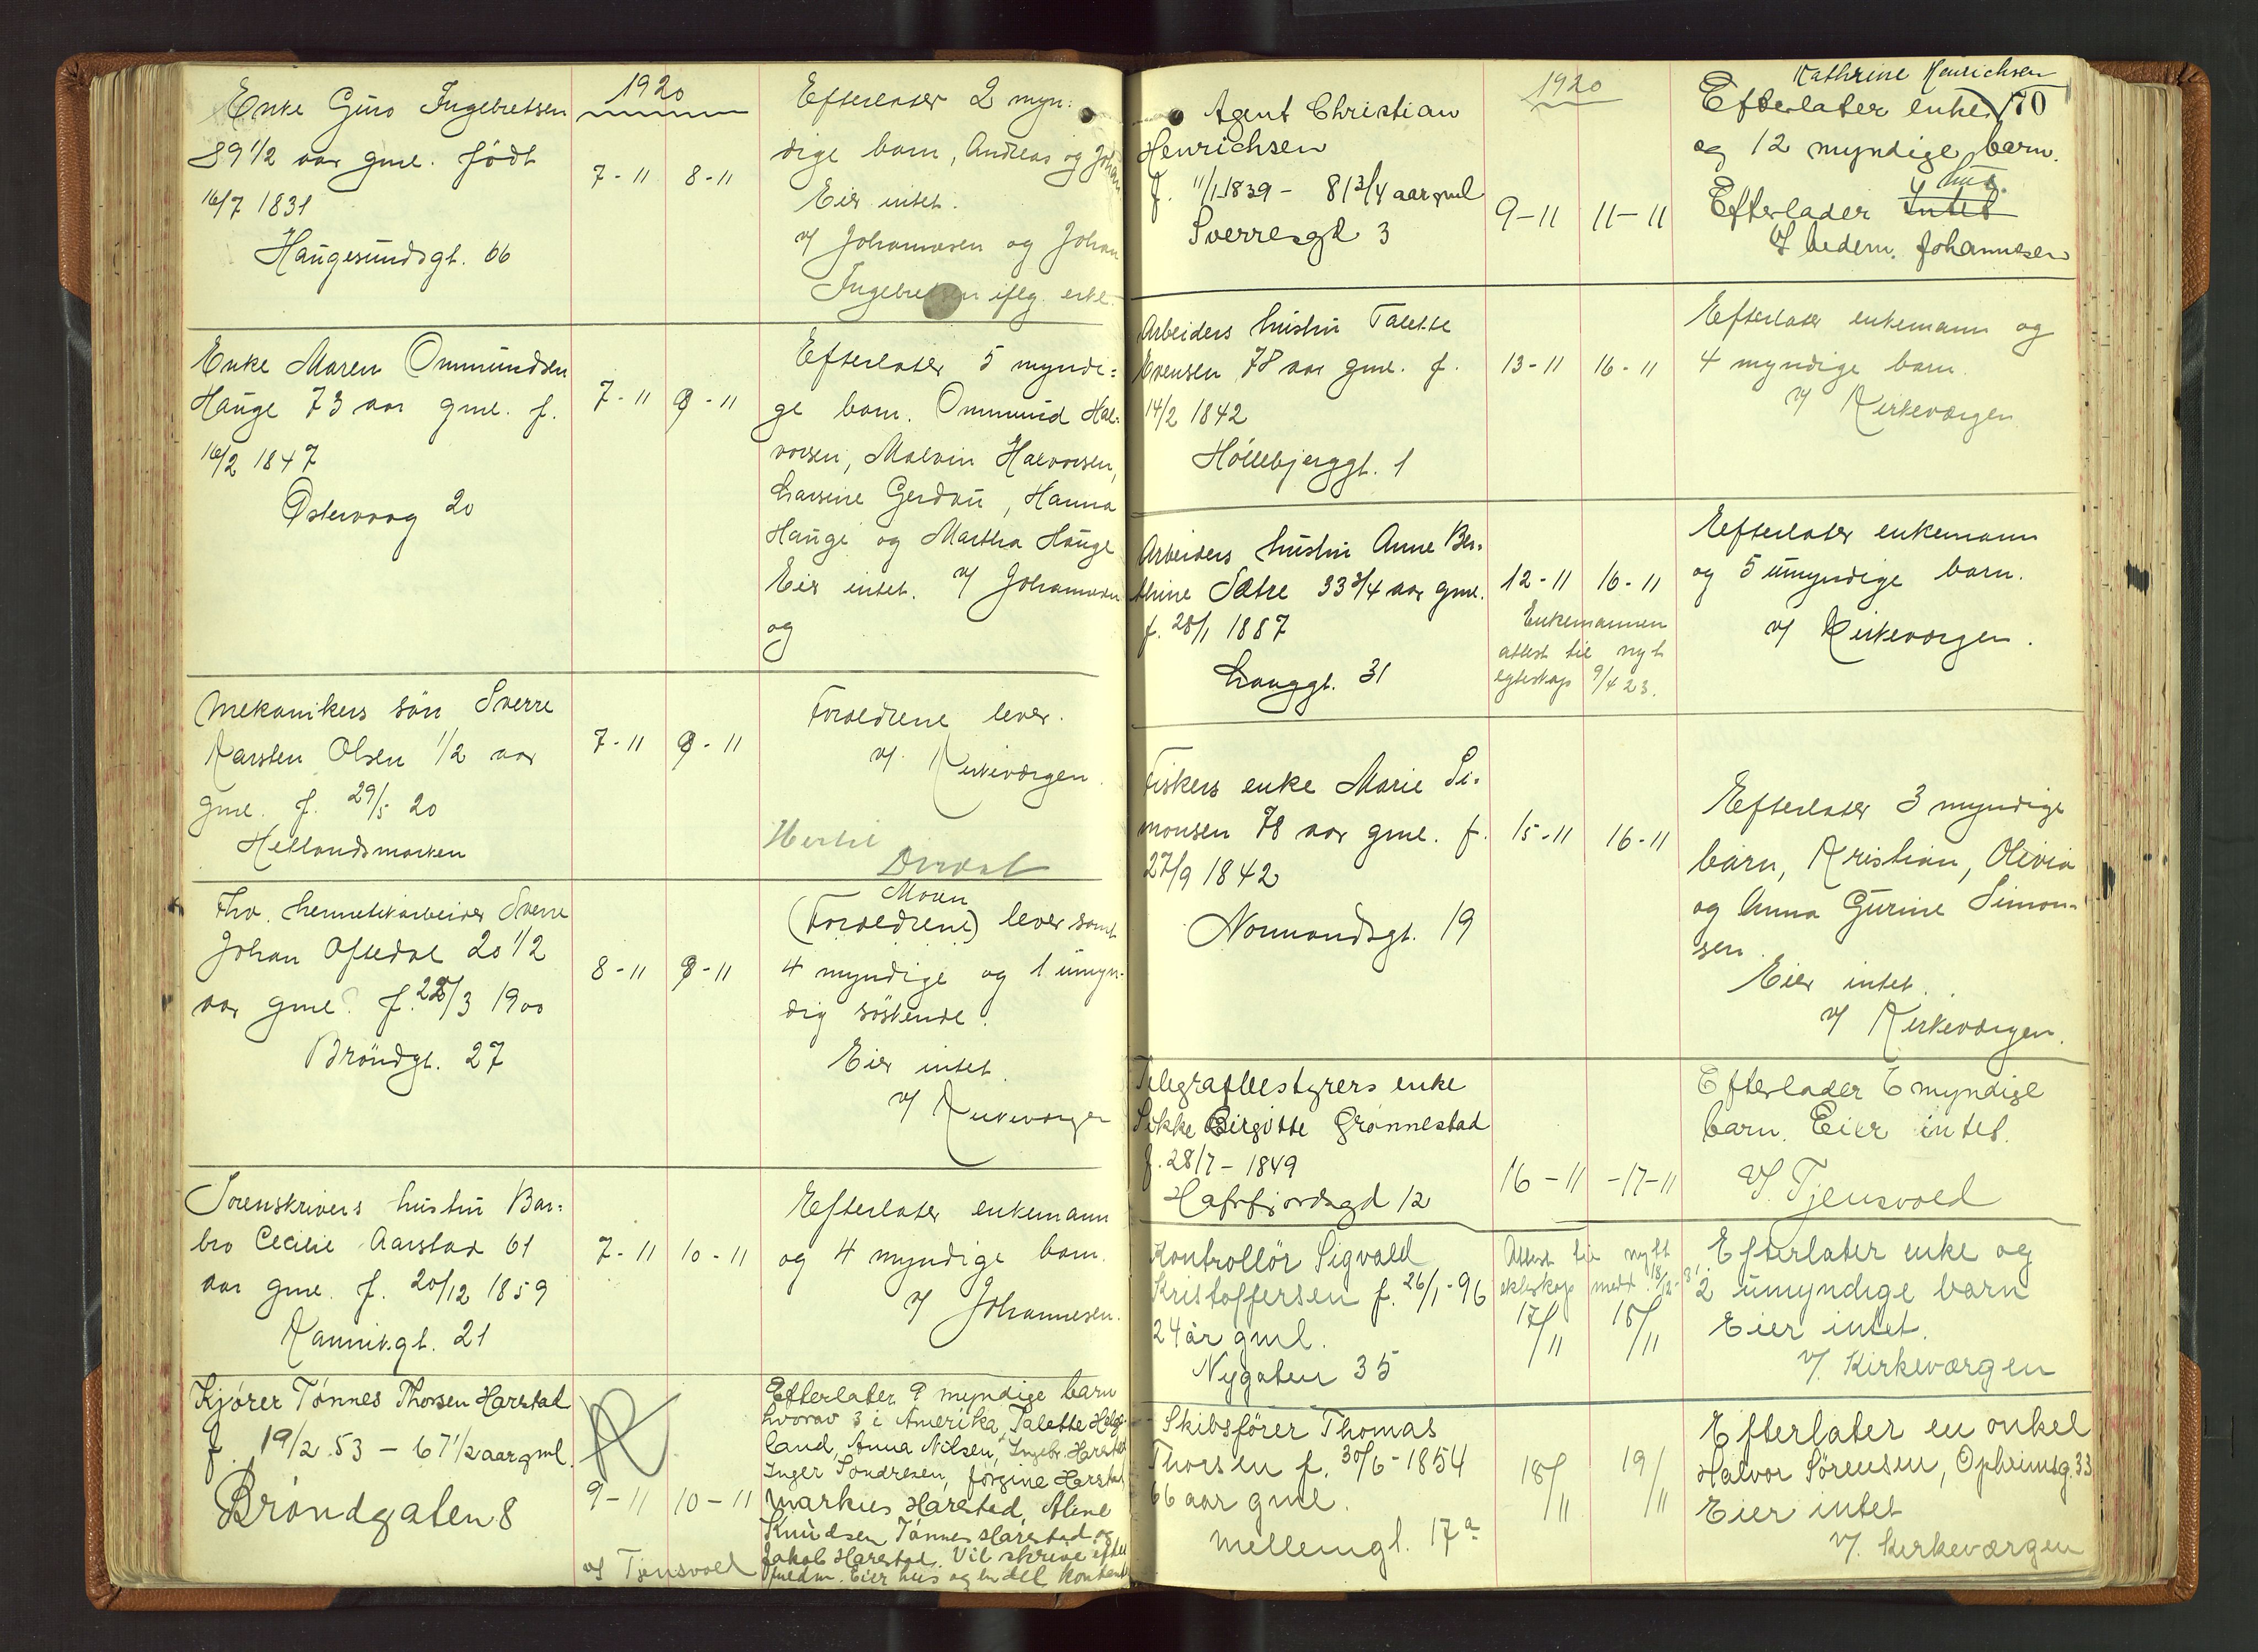 1920
Enke Guro Ingebretsen
89 1/2 aar gml. født
16/7 1831
Haugesundsgt. 66
7-11 8-11
Efterlater 2 myn:
dige barn, Andreas og Johan
Eier intet.
v/ Johannesen og Johan
Ingebretsen iflg. erkl.
Enke Maren Ommundsen
Hauge 73 aar gml. f.
16/2 1847
Østervaag 20
7-11 9-11
Efterlater 5 myndi:
ge barn. Ommund Hal:
vorsen, Malvin Halvorsen,
Larsine Gerdau, Hanna
Hauge og Martha Hauge
Eier intet. v/ Johannesen
og
Mekanikers sön Sverre
Karsten Olsen 1/2 aar
gml. f. 29/5 20
Hetlandsmarken
7-11 9-11
Forældrene lever.
v/ Kirkeværgen.
Hertil
Fhv. hermetikarbeider Sverre
Johan Oftedal 20 1/2
aar gml. f. 28/3 1900
Bröndgt. 27
8-11 9-11
Moren
(Forældrene) lever samt
4 myndige og 1 umyn-
dig söskende.
Eier intet.
v/ Kirkeværgen
Sorenskrivers hustru Bar:
bro Cecilie Aarstad 61
aar gml. f. 20/12 1859
Kannikgt. 21
7-11 10-11
Efterlater enkemann
og 4 myndige barn.
v/ Johannesen.
Kjører Tønnes Thorsen Harestad
f. 19/2 53 - 67 1/2 aar gml.
Brøndgaten 8
R
9-11 10-11
v/ Tjensvold
Efterlater 9 myndige barn
hvorav 3 i Amerika, Talette Helge-
land, Anna Nilsen, Ingebr. Harestad
Inger Sondresen, Jorgine Harestad,
Markus Harestad, Alene
Knudsen, Tønnes Harestad og
Jakob Harestad. Vil skrive efter
fuldm. Eier hus og en del kontant
1920
70
Agent Christian
Henrichsen
f. 11/1 1839 - 81 3/4 aar gml
Sverresgd 3
9-11 11-11
Kathrine Henrichsen
Efterlater enke
og 12 myndige barn.
hus.
Efterlader Intet
v/ bedem. Johannesen
Arbeiders hustru Talette
Evensen 78 aar gml. f.
14/2 1842
Höllebjerggt. 1
13-11 16-11
Efterlater enkemann og
4 myndige barn.
v/ Kirkeværgen
Arbeiders hustru Anne Ber-
thine Sætre 33 3/4 aar gml.
f. 28/1 1887
Langgt. 31
12-11 16-11
Enkemannen
attest til nyt
egteskap 9/4 23.
Efterlater enkemann
og 5 umyndige barn.
v/ Kirkeværgen.
Fiskers enke Marie Si-
monsen 78 aar gml. f.
27/9 1842
Normandsgt. 19
15-11 16-11
Efterlater 3 myndige
barn, Kristian, Olivia
og Anna Gurine Simon-
sen.
Eier intet.
v/ Kirkeværgen.
Telegrafbestyrers enke
Sikke Birgitte Grønnestad
f. 28/7 - 1849
Hafrfjordsgd 12
16-11 -17-11
Efterlader 6 myndige
barn. Eier intet.
v/ Tjensvold
Kontrollör Sigvald
Kristoffersen f. 26/1 - 96
24 år gml.
Nygaten 35
Attest til nytt
ekteskap medd. 18/12-31.
17/11 18/11
Efterlater enke og
2 umyndige barn
Eier intet.
v/ Kirkeværgen
Skibsförer Thomas
Thorsen f. 30/6 - 1854
66 aar gml.
Mellemgt. 17a
18/11 19/11
Efterlater en onkel
Halvor Sörensen, Opheimsg. 33
Eier intet
v/ Kirkeværgen